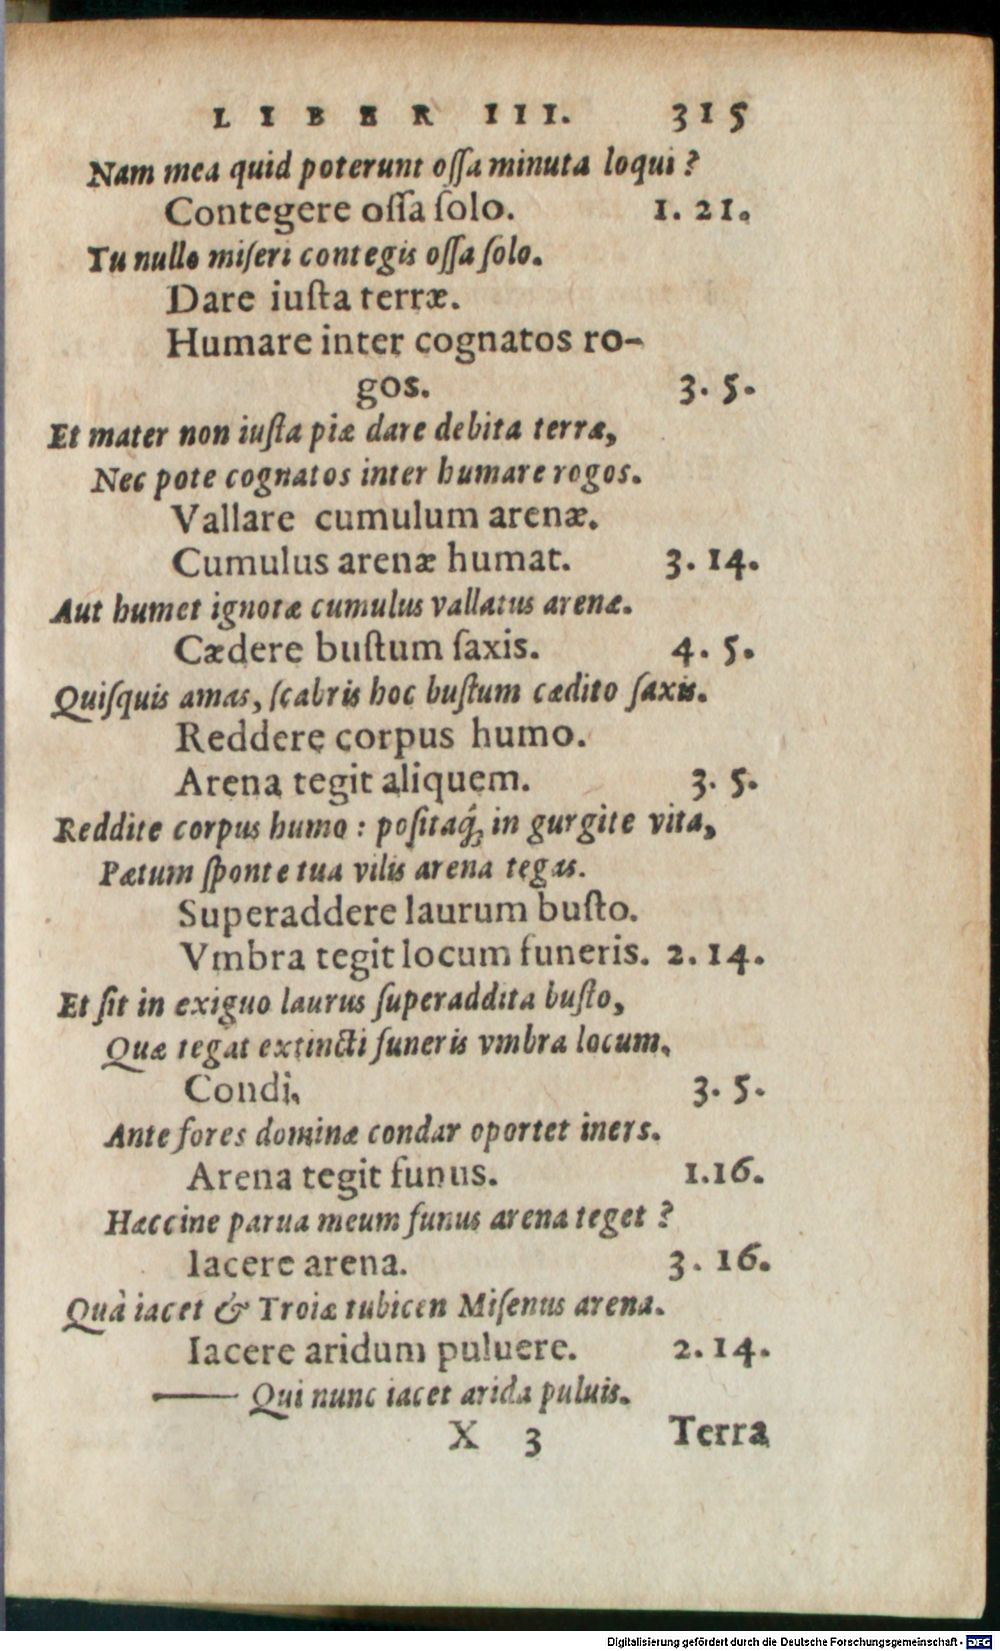 LIBER III. 315
Nam mea quid poterunt oſſa minuta loqui?
Contegere oſſa ſolo. 1. 21.
Tu nullo miſeri contegis oſſa ſolo.
Dare iuſta terræ.
Humare inter cognatos ro-
gos. 3. 5.
Et mater non iuſta piæ dare debita terræ,
Nec pote cognatos inter humare rogos.
Vallare cumulum arenæ.
Cumulus arenæ humat. 3. 14.
Aut humet ignotæ cumulus vallatus arenæ.
Cædere buſtum ſaxis. 4. 5.
Quiſquis amas, ſcabris hoc buſtum cædito ſaxis.
Reddere corpus humo.
Arena tegit aliquem. 3. 5.
Reddite corpus humo: poſitaq́; in gurgite vita,
Pætum ſponte tua vilis arena tegas.
Superaddere laurum buſto.
Vmbra tegit locum funeris. 2. 14.
Et ſit in exiguo laurus ſuperaddita buſto,
Quæ tegat extincti funeris vmbra locum.
Condi. 3. 5.
Ante fores dominæ condar oportet iners.
Arena tegit funus. 1.16.
Hæccine parua meum funus arena teget?
Iacere arena. 3. 16.
Quà iacet & Troiæ tubicen Miſenus arena.
Iacere aridum puluere. 2. 14.
—— Qui nunc iacet arida puluis.
X 3 Terra
Digitalisierung gefördert durch die Deutsche Forschungsgemeinschaft - DFG